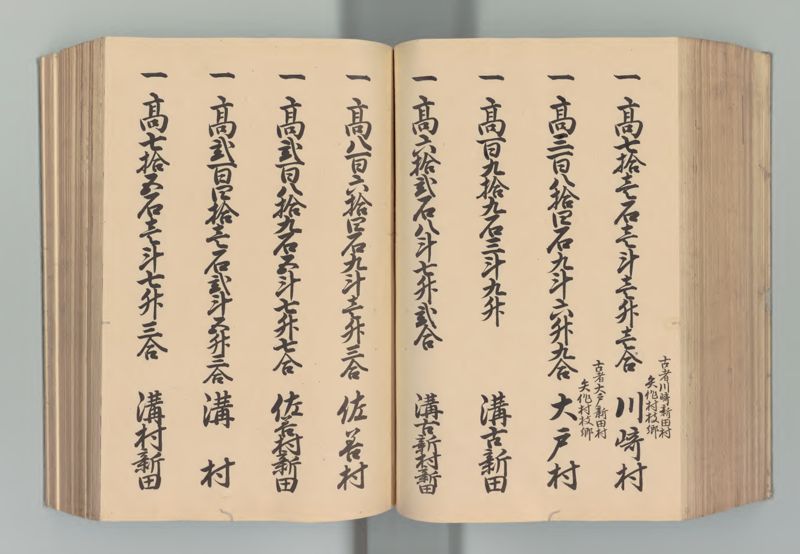 一 高七拾壱石壱斗壱升壱合
古者川崎新田村
矢作村枝郷
川崎村
一 高三百八拾四石九斗六升九合
古者大戸新田村
矢作村枝郷
大戸村
一 高百九拾九石三斗九升
溝古新田
一 高六拾弐石八斗七升弐合
溝古新村新田
一 高八百六拾四石九斗壱升三合
佐善村
一 高弐百八拾九石五斗七升七合
佐善村新田
一 高弐百四拾壱石弐斗五升三合
溝村
一 高七拾五石壱斗七升三合
溝村新田